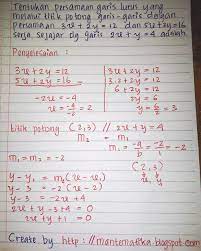 Tentukan persamaan garis lurus yang
melalui titik potong garis-garis dengan
persamaan 3x + 2y = 12 dan 5x + 2y = 16
serta sejajar dg garis 2x + y = 4 adalah
Penyelesaian :
3x + 2y = 12
5x + 2y = 16
-2x = -4
x = -4/-2 = 2
3x + 2y = 12
3.2 + 2y = 12
6 + 2y = 12
2y = 6
y = 6/2 = 3
titik potong (2,3) // 2x + y = 4
m₂ = m₁
m₁ = -a/b = -2/1 = -2
m₁ = m₂ = -2
(2,3)
y - y₁ = m₂ (x - x₁)
y - 3 = -2 (x - 2)
y - 3 = -2x + 4
2x + y - 3 - 4 = 0
2x + y - 7 = 0
Create by : http://mantematika.blogspot.com